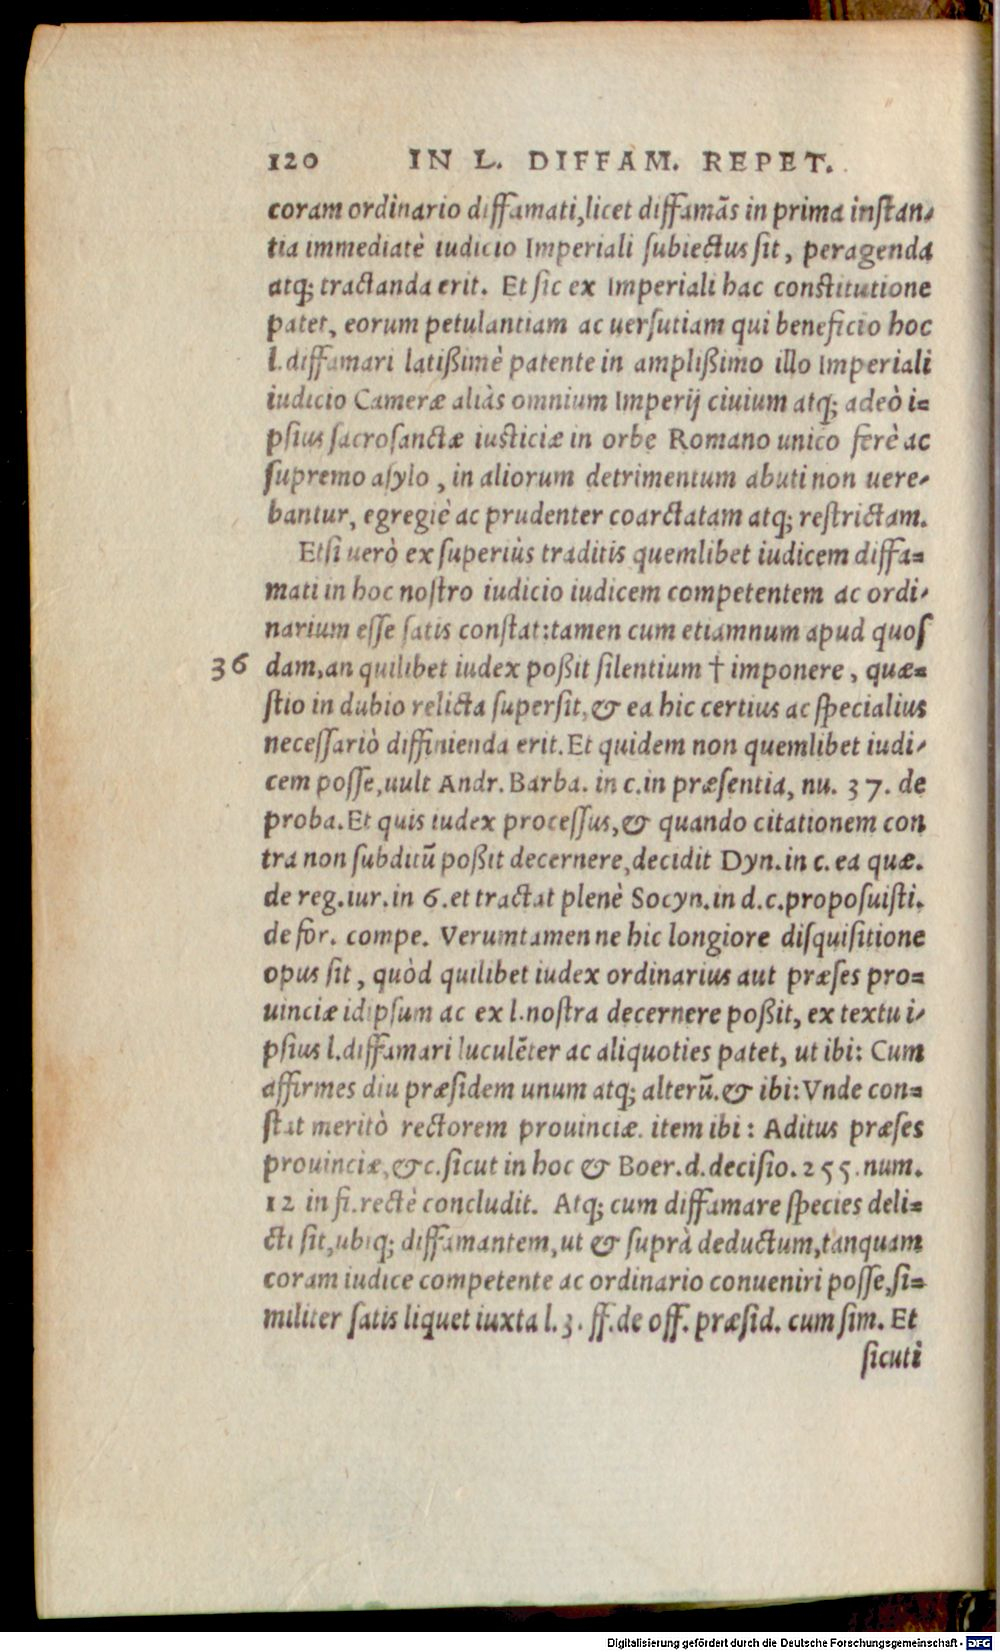 120 IN L. DIFFAM. REPET.
coram ordinario diffamati, licet diffamãs in prima instan-
tia immediatè iudicio Imperiali subiectus sit, peragenda
atq; tractanda erit. Et sic ex Imperiali hac constitutione
patet, eorum petulantiam ac uersutiam qui beneficio hoc
l. diffamari latißimè patente in amplißimo illo Imperiali
iudicio Cameræ aliàs omnium Imperij ciuium atq; adeò i=
psius sacrosanctæ iusticiæ in orbe Romano unico ferè ac
supremo asylo, in aliorum detrimentum abuti non uere-
bantur, egregiè ac prudenter coarctatam atq; restrictam.
Etsi uerò ex superiùs traditis quemlibet iudicem diffa=
mati in hoc nostro iudicio iudicem competentem ac ordi-
narium esse satis constat: tamen cum etiamnum apud quos
36 dam, an quilibet iudex poßit silentium † imponere, quæ=
stio in dubio relicta supersit, & ea hic certius ac specialius
necessariò diffinienda erit. Et quidem non quemlibet iudi-
cem posse, uult Andr. Barba. in c. in præsentia, nu. 37. de
proba. Et quis iudex processus, & quando citationem con
tra non subditũ poßit decernere, decidit Dyn. in c. ea quæ.
de reg. iur. in 6. et tractat plenè Socyn. in d. c. proposuisti.
de for. compe. Verumtamen ne hic longiore disquisitione
opus sit, quòd quilibet iudex ordinarius aut præses pro=
uinciæ idipsum ac ex l. nostra decernere poßit, ex textu i-
psius l. diffamari luculẽter ac aliquoties patet, ut ibi: Cum
affirmes diu præsidem unum atq; alterũ. & ibi: Vnde con=
stat meritò rectorem prouinciæ. item ibi: Aditus præses
prouinciæ, &c. sicut in hoc & Boer. d. decisio. 255. num.
12 in fi. rectè concludit. Atq; cum diffamare species deli=
cti sit, ubiq; diffamantem, ut & suprà deductum, tanquam
coram iudice competente ac ordinario conueniri posse, si=
militer satis liquet iuxta l. 3. ff. de off. præsid. cum sim. Et
sicuti
Digitalisierung gefördert durch die Deutsche Forschungsgemeinschaft - DFG